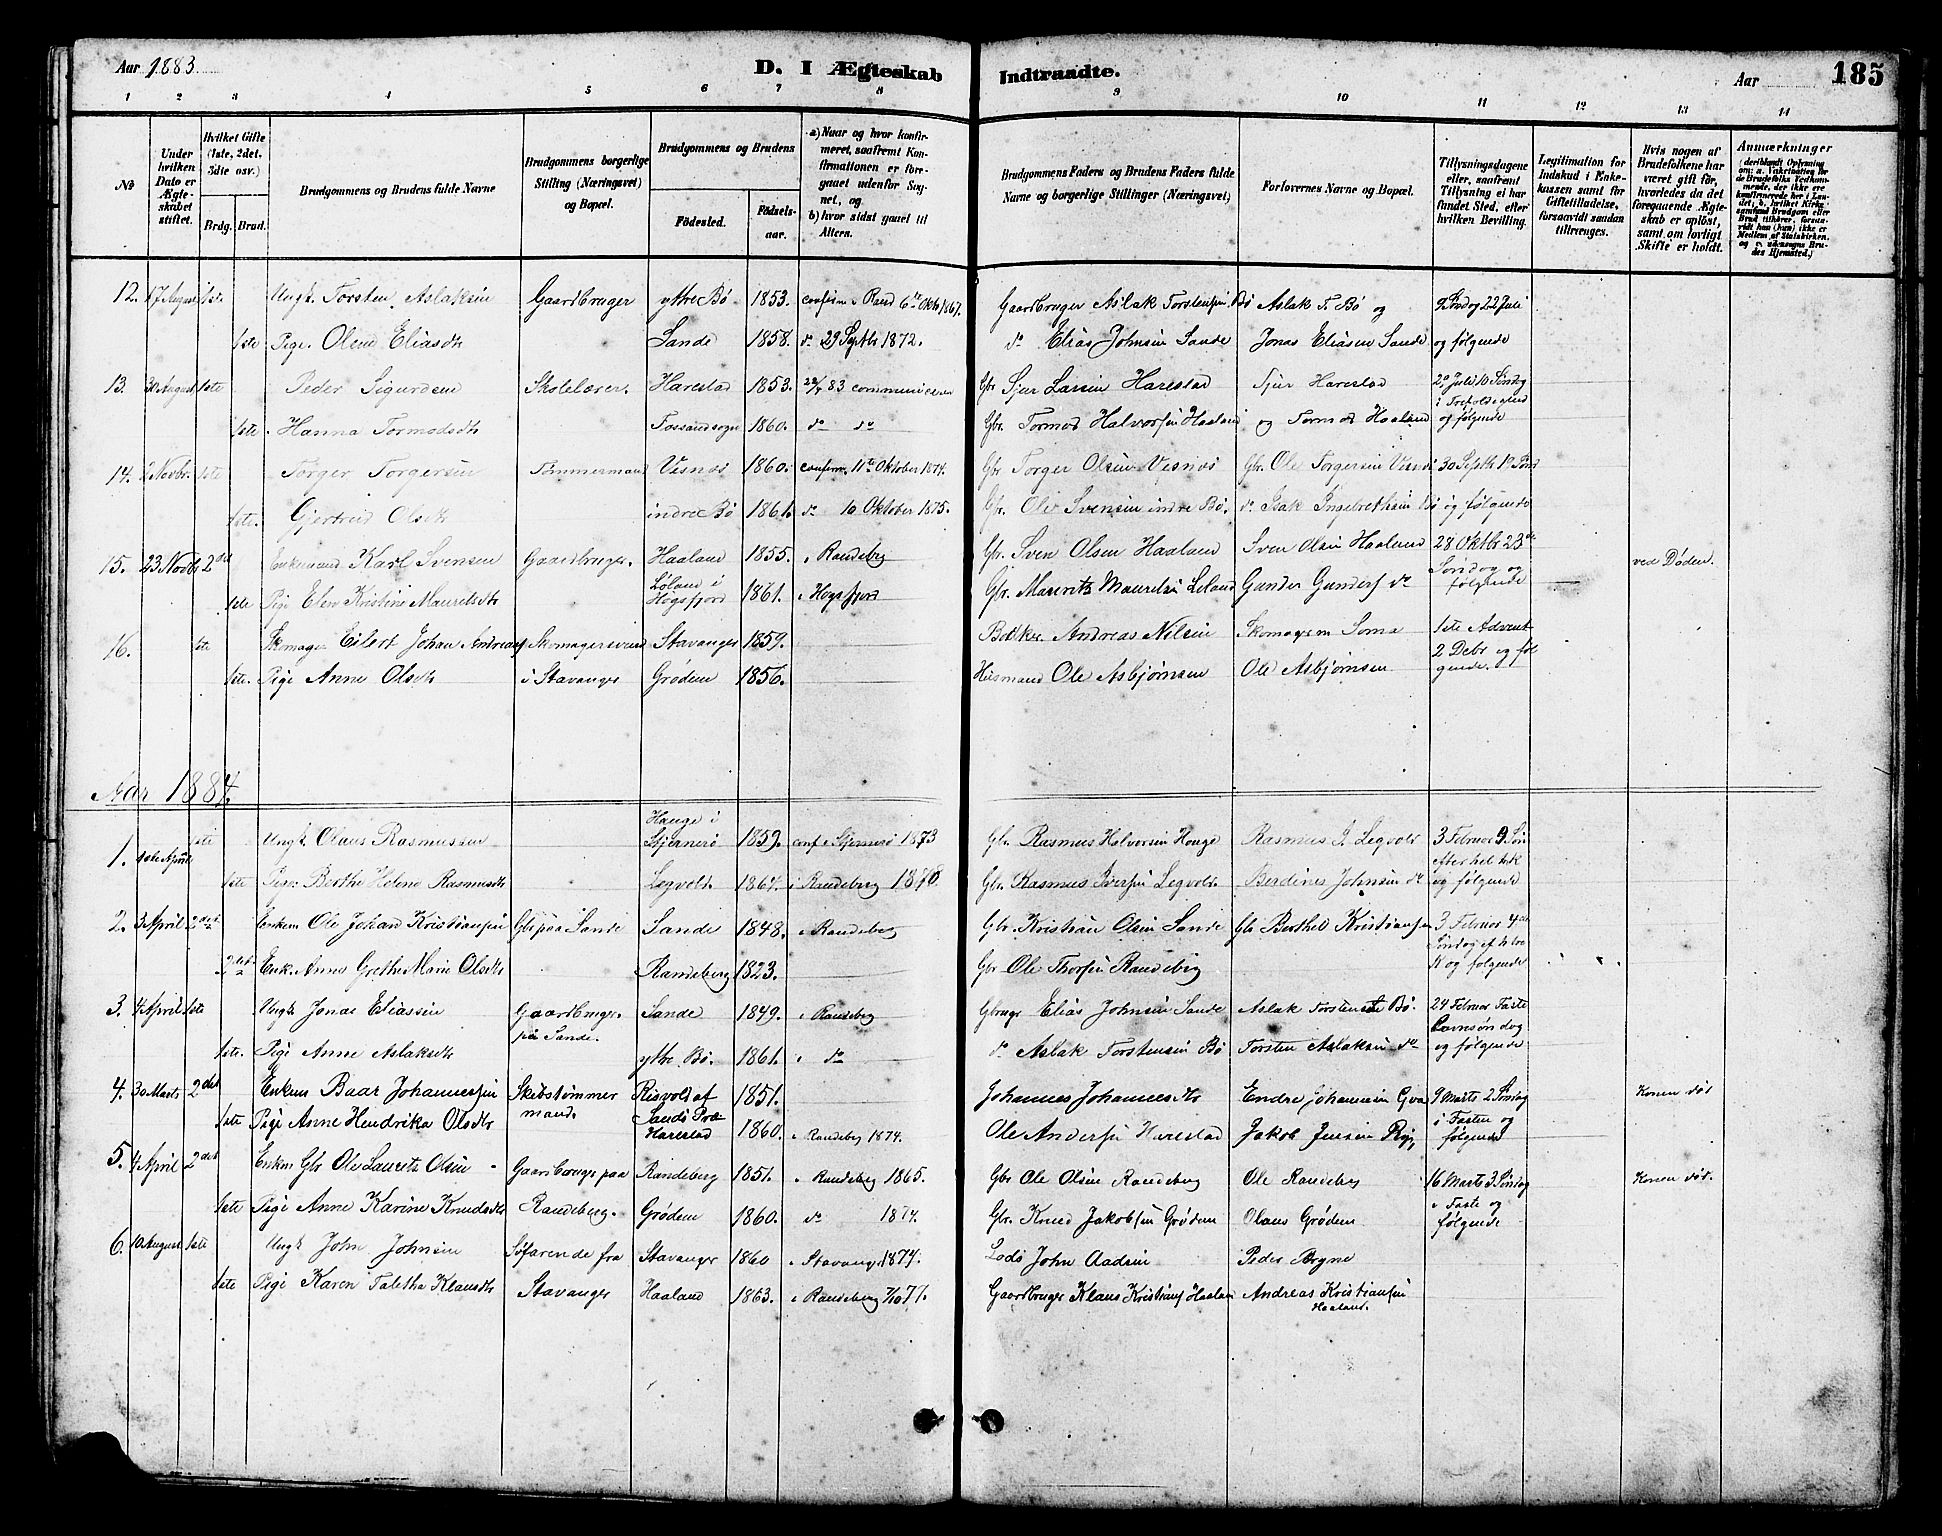 Aar 1883. D. I Ægteskab Indtraadte. Aar 185
1 2 3 4 5 6 7 8 9 10 11 12 13 14
No
Under hvilken Dato er Ægteskabet stiftet.
Hvilket Gifte (1ste, 2det, 3die osv.)
Brdg. Brud.
Brudgommens og Brudens fulde Navne
Brudgommens borgerlige Stilling (Næringsvei) og Bopæl.
Brudgommens og Brudens
Fødested. Fødselsaar.
a) Naar og hvor konfirmeret, saafremt Konfirmationen er foregaaet udenfor Sognet, og
b) hvor sidst gaaet til Alters.
Brudgommens Faders og Brudens Faders fulde Navne og borgerlige Stillinger (Næringsvei)
Forlovernes Navne og Bopæl.
Tillysningsdagene eller, saafremt Tillysning ei har fundet Sted, efter hvilken Bevilling.
Legitimation for Indskud i Enkekassen samt for Giftetilladelse, forsaavidt saadan tiltrænges.
Hvis nogen af Brudefolkene har været gift før, hvorledes da det foregaaende Ægteskab er opløst, samt om lovligt Skifte er holdt.
Anmærkninger
12. 17 August 1ste Ungk. Torsten Aslaksen Gaardbruger ytre Bø 1853. confirm i Rand 6te Oktb 1867. Gaardbruger Aslak Torstensen Bø Aslak T. Bø og 9 Søndag 22 Juli
1ste Pige Olene Eliasdtr Sande 1858. do 29 Septbr 1872. do Elias Johnsen Sande Jonas Eliasen Sande og følgende
13. 30 August 1ste Peder Sigurdsen Skolelærer. Harestad 1853. 83 Gbr Sjur Larsen Harestad Sjur Harestad 2 Juli 10 Søndag
i Trefoldighed
1ste Hanna Tormodsdtr Fossandsogn 1860. do do Gbr. Tormod Halvorsen Haaland og Tormod Haaland og følgende
14. 2 Novbr. 1ste Torger Torgersen Tømmermand Visnæs 1860. confirm. 11te Oktober 1874. Gbr Torger Olsen Visnæs Gbr. Ole Torgersen Visnæs 30 Septbr 19 Sønd
1ste. Gjertrud Olsdtr indre Bø 1861. do 10 Oktober 1875. Gbr. Ole Svensen indre Bø. do Isak Ingebrethsen Bø og følgende
15. 23 Novbr 2det Enkemand Karl Svensen Gaardbruger. Haaland 1855. i Randeberg Gbr. Sven Olsen Haaland Sven Olsen Haaland 28 Oktbr 23de ved Døden.
1ste Pige Elen Kristine Mauretsdtr Løland i Høgsfjord 1861. i Høgsfjord Gbr. Mauritz Mauretsen Leland Gunder Gunders do Søndag og følgende
16. 1ste Skomager Eilert Johan Andreas Skomagersvend Stavanger 1859. Bødker Andreas Nilsen Skomager Soma 1ste Advent
1ste. Pige Anne Olsdtr i Stavanger Grødem 1856. Husmand Ole Asbjørnsen Ole Asbjørnsen 2 Debr og følgende.
Aar 1884.
1. 1ste April 1ste Ungk. Olaus Rasmussen Hauge i Stjernerø 1859. conf i Stjernerø 1873 Gbr. Rasmus Halvorsen Hauge Rasmus I. Legvolt 3 Februar
1ste Pige Berthe Helene Rasmusdtr Legvolt 1864. i Randeberg 1878. Gbr. Rasmus Iversen Legvolt Berdines Johnsen do og følgende
2. 3 April 2det Enkem Ole Johan Kristiansen Gbr paa Sande Sande 1848. i Randeberg Gbr. Kristian Olsen Sande Gbr Berthel Kristiansen 3 Februar 4de
2det Enk. Anne Grethe Marie Olsdtr Randeberg 1823. Gbr Ole Thorsen Randeberg og følgende
3. 4 April 1ste Ungk Jonas Eliassen Gaardbruger på Sande. Sande 1849. i Randeberg Gbruger Elias Johnsen Sande Aslak Torstensen Bø. 24 Februar Faste
1ste. Pige Anne Aslaksdtr ytre Bø. 1861. i do do Aslak Torstensen Bø Torsten Aslaksen do og følgende
4. 30 Marts 2det Enkem Baar Johannessen Skibstømmermand. Risvold af Sands Præ 1851. Johannes Johannesdtr Endre Johannesen Gva 9 Marts 2 Søndag Konen død
1ste Pige Anne Hendrika Olsdtr Harestad 1860. i Randeberg 1874. Ole Andersen Harestad Jakob Jensen i Fasten og følgende
5. 4 April 2det Enkem Gbr Ole Laurits Olsen Gaardbruger paa Randeberg 1851. i Randeberg 1865. Gbr Ole Olsen Randeberg Ole Randeberg 16 Marts 3 Søndag Konen død.
1ste Pige Anne Karine Knudsdtr Randeberg. Grødem 1860. do 1874. Gbr. Knud Jakobsen Grødem Olaus Grødem i Faste og følgende
6. 10 August 1ste Ungk John Johnsen Søfarende fra Stavanger 1860 i Stavanger 1874. Lods John Aadsen Peder Bryne
1ste Pige Karen Taletha Klausdtr Stavanger Haaland 1863. i Randeberg 7/10 77. Gaardbruger Klaus Kristians Haaland Andreas Kristiansen
Haaland.